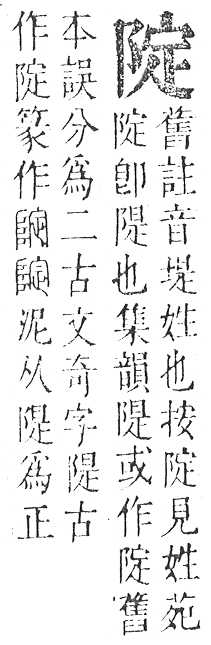 舊註音堤姓也按見姓苑
卽隄也集韻隄或作舊
本誤分爲二古文奇字隄古
作篆作泥从隄爲正